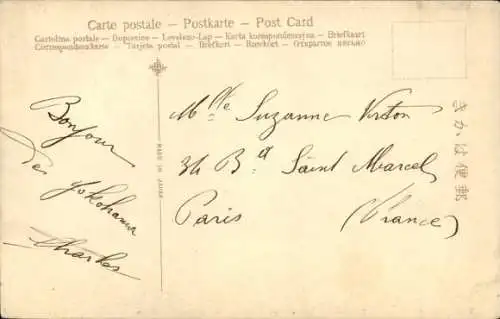 Carte postale – Postkarte – Post Card
Cartolina postale – Dopisnice – Levelezo-Lap – Karta korespondencyjna – Briefkaart
Correspondenzkarte – Tarjeta postal – Brefkort – Brevkort – Открытое письмо
Bonjour
de
Yokohama
Charles
MADE IN JAPAN
Mlle Suzanne Virton
34 Bd Saint Marcel
Paris (France)
きかは便郵